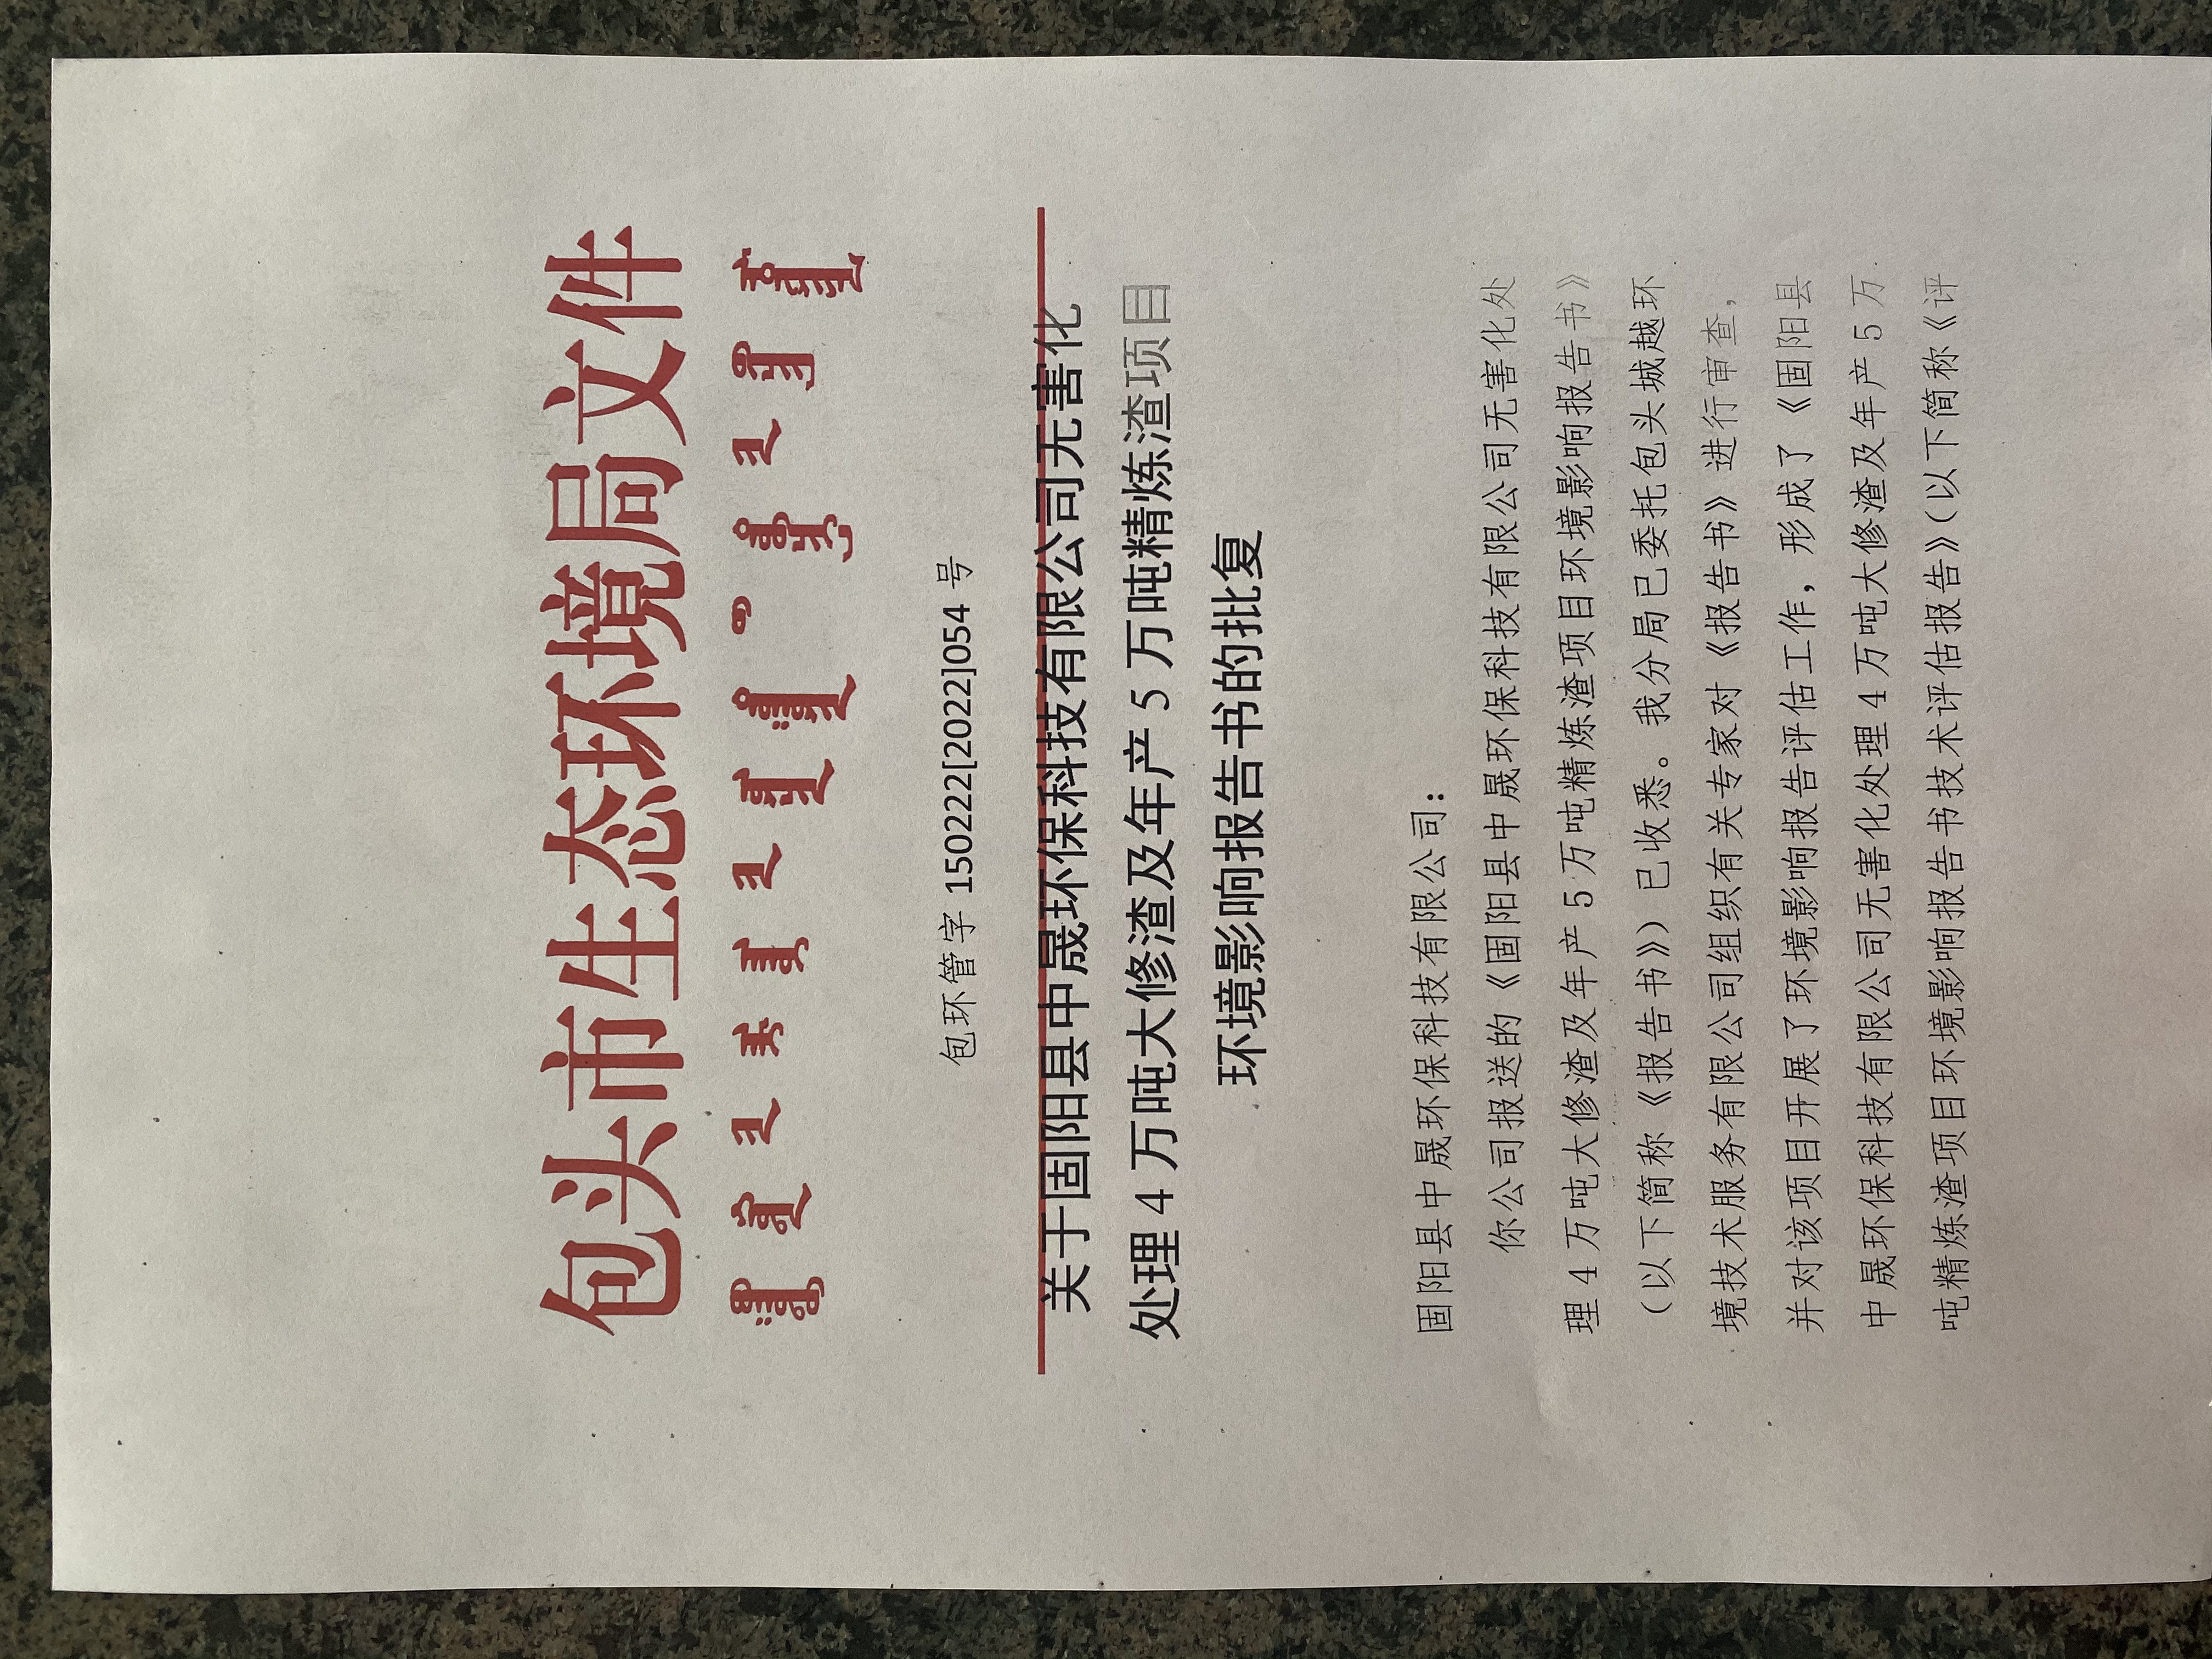 包头市生态环境局文件
包环管字 150222[2022]054 号
关于固阳县中晟环保科技有限公司无害化
处理 4 万吨大修渣及年产 5 万吨精炼渣项目
环境影响报告书的批复
固阳县中晟环保科技有限公司：
你公司报送的《固阳县中晟环保科技有限公司无害化处
理 4 万吨大修渣及年产 5 万吨精炼渣项目环境影响报告书》
（以下简称《报告书》）已收悉。我分局已委托包头城越环
境技术服务有限公司组织有关专家对《报告书》进行审查，
并对该项目开展了环境影响报告评估工作，形成了《固阳县
中晟环保科技有限公司无害化处理 4 万吨大修渣及年产 5 万
吨精炼渣项目环境影响报告书技术评估报告》（以下简称《评